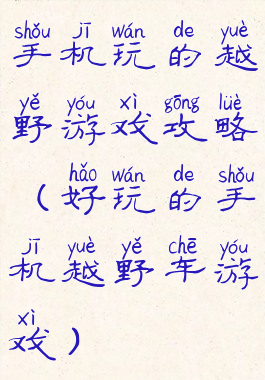 shǒu jī wán de yuè
手机玩的越
yě yóu xì gōng lüè
野游戏攻略
hǎo wán de shǒu
（好玩的手
jī yuè yě chē yóu
机越野车游
xì
戏）